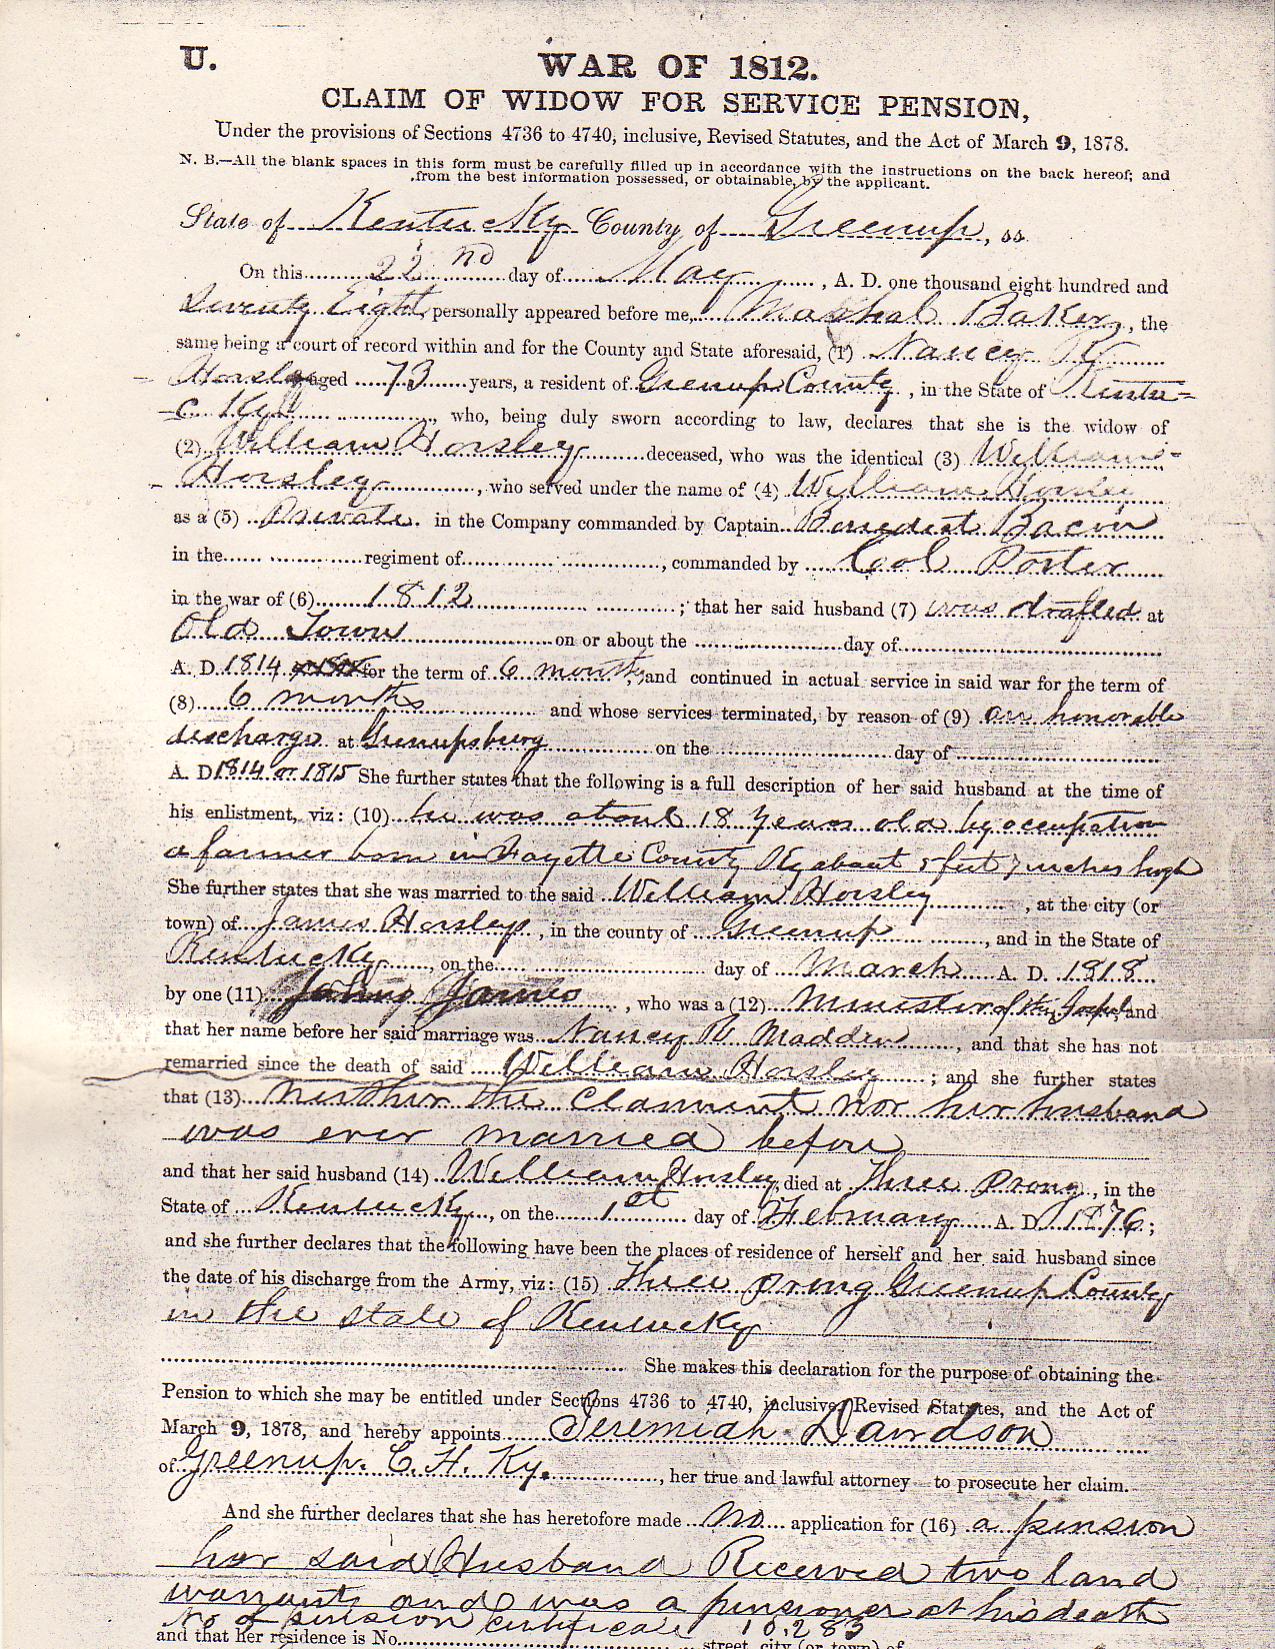 U.
WAR OF 1812.
CLAIM OF WIDOW FOR SERVICE PENSION,
Under the provisions of Sections 4736 to 4740, inclusive, Revised Statutes, and the Act of March 9, 1878.
N. B.—All the blank spaces in this form must be carefully filled up in accordance with the instructions on the back hereof; and
from the best information possessed, or obtainable, by the applicant.
State of Kentucky County of Greenup, ss.
On this 22nd day of May, A. D. one thousand eight hundred and
Seventy Eight, personally appeared before me, Mashal Baker, the
same being a court of record within and for the County and State aforesaid, (1) Nancy R
Horsley aged 73 years, a resident of Greenup County, in the State of Kentu=
cky, who, being duly sworn according to law, declares that she is the widow of
(2) William Horsley deceased, who was the identical (3) William
Horsley, who served under the name of (4) William Horsley
as a (5) Private in the Company commanded by Captain Benedict Bacon
in the regiment of, commanded by Col Porter
in the war of (6) 1812; that her said husband (7) was drafted at
Old Town on or about the day of
A. D. 1814 for the term of 6 months, and continued in actual service in said war for the term of
(8) 6 months and whose services terminated, by reason of (9) an honorable
discharge at Greenupsburg on the day of
A. D. 1814 or 1815 She further states that the following is a full description of her said husband at the time of
his enlistment, viz: (10) he was about 18 years old by occupation
a farmer born in Fayette County Ky about 5 feet 7 inches high
She further states that she was married to the said William Horsley, at the city (or
town) of James Horsleys, in the county of Greenup, and in the State of
Kentucky, on the day of March A. D. 1818
by one (11) James, who was a (12) Minister of the Gospel, and
that her name before her said marriage was Nancy R Madden, and that she has not
remarried since the death of said William Horsley; and she further states
that (13) neither the clament nor her husband
was ever married before
and that her said husband (14) William Horsley, died at Three Prong, in the
State of Kentucky, on the 1st day of February A. D. 1876;
and she further declares that the following have been the places of residence of herself and her said husband since
the date of his discharge from the Army, viz: (15) Three prong Greenup County
in the state of Kentucky
She makes this declaration for the purpose of obtaining the
Pension to which she may be entitled under Sections 4736 to 4740, inclusive, Revised Statutes, and the Act of
March 9, 1878, and hereby appoints Jeremiah Davidson
of Greenup. C. H. Ky., her true and lawful attorney to prosecute her claim.
And she further declares that she has heretofore made no application for (16) a pension
her said Husband Received two land
warrants and was a pensioner at his death
No of pension certificate 10,283
and that her residence is No. street, city (or town) of